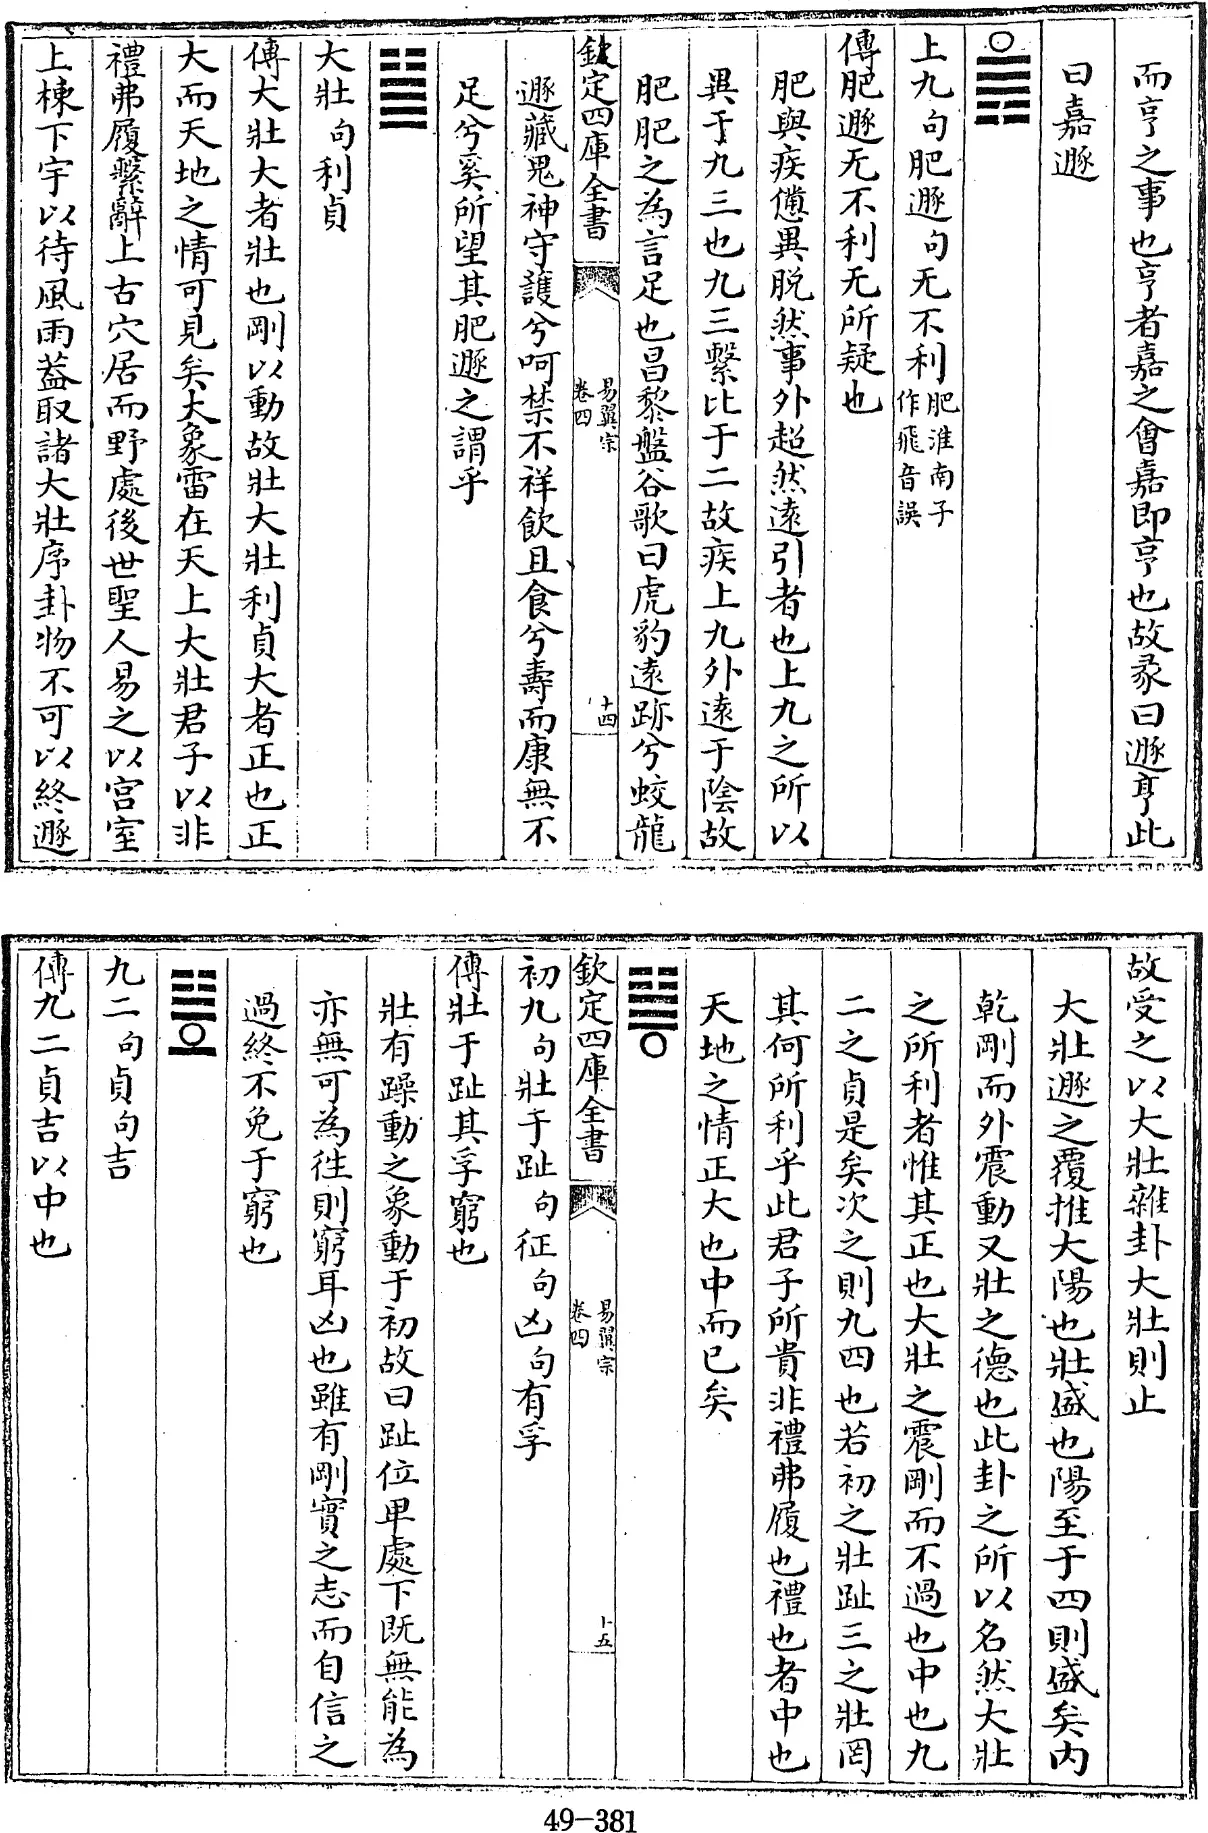 而亨之事也亨者嘉之會嘉即亨也故彖曰遯亨此
曰嘉遯
上九句肥遯句无不利肥淮南子作飛音誤
傳肥遯无不利无所疑也
肥與疾憊異脫然事外超然遠引者也上九之所以
異于九三也九三繫比于二故疾上九外遠于陰故
肥肥之為言足也昌黎盤谷歌曰虎豹遠跡兮蛟龍
欽定四庫全書
易翼宗
卷四
十四
遯藏鬼神守護兮呵禁不祥飲且食兮壽而康無不
足兮奚所望其肥遯之謂乎
大壯句利貞
傳大壯大者壯也剛以動故壯大壯利貞大者正也正
大而天地之情可見矣大象雷在天上大壯君子以非
禮弗履繫辭上古穴居而野處後世聖人易之以宮室
上棟下宇以待風雨蓋取諸大壯序卦物不可以終遯
故受之以大壯雜卦大壯則止
大壯遯之覆推大陽也壯盛也陽至于四則盛矣內
乾剛而外震動又壯之德也此卦之所以名然大壯
之所利者惟其正也大壯之震剛而不過也中也九
二之貞是矣次之則九四也若初之壯趾三之壯罔
其何所利乎此君子所貴非禮弗履也禮也者中也
天地之情正大也中而已矣
欽定四庫全書
易翼宗
卷四
十五
初九句壯于趾句征句凶句有孚
傳壯于趾其孚窮也
壯有躁動之象動于初故曰趾位卑處下既無能為
亦無可為徃則窮耳凶也雖有剛實之志而自信之
過終不免于窮也
九二句貞句吉
傳九二貞吉以中也
49-381